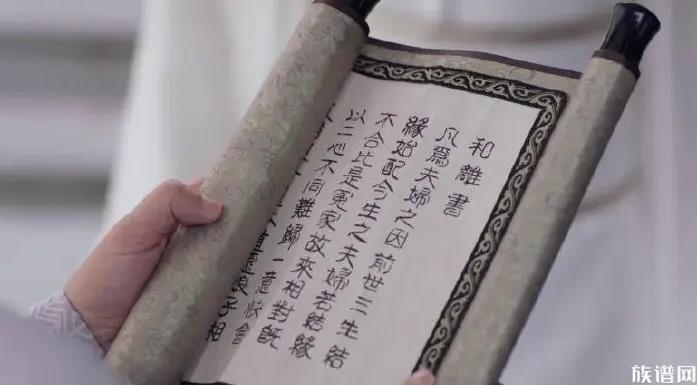 和離書
凡爲夫婦之因前世三生結
緣始配今生之夫婦若結緣
不合比是冤家故來相對既
以二心不同難歸一意快會
子相
族谱网